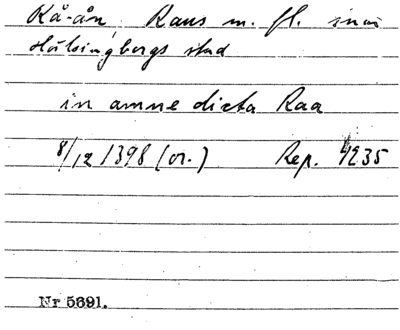 Rå-ån, Raus m. fl. inom
Hälsingborgs stad
in amne dicta Raa
8/12 1398 (or.) Rep. 4235
Nr 5691.